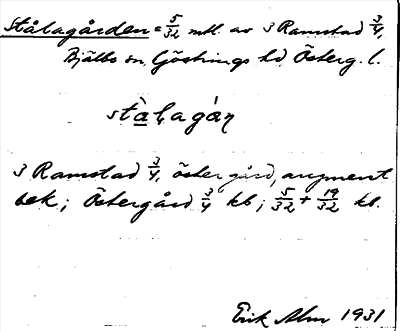 Stålagården = 5/32 mtl. av 3 Ramstad 3/4,
Bjälbo sn, Göstrings hd Österg. l.
stàlagàṇ
3 Ramstad 3/4, östergård, augment
bek; Östergård 3/4 kb; 5/32 + 19/32 kl.
Erik Alm 1931